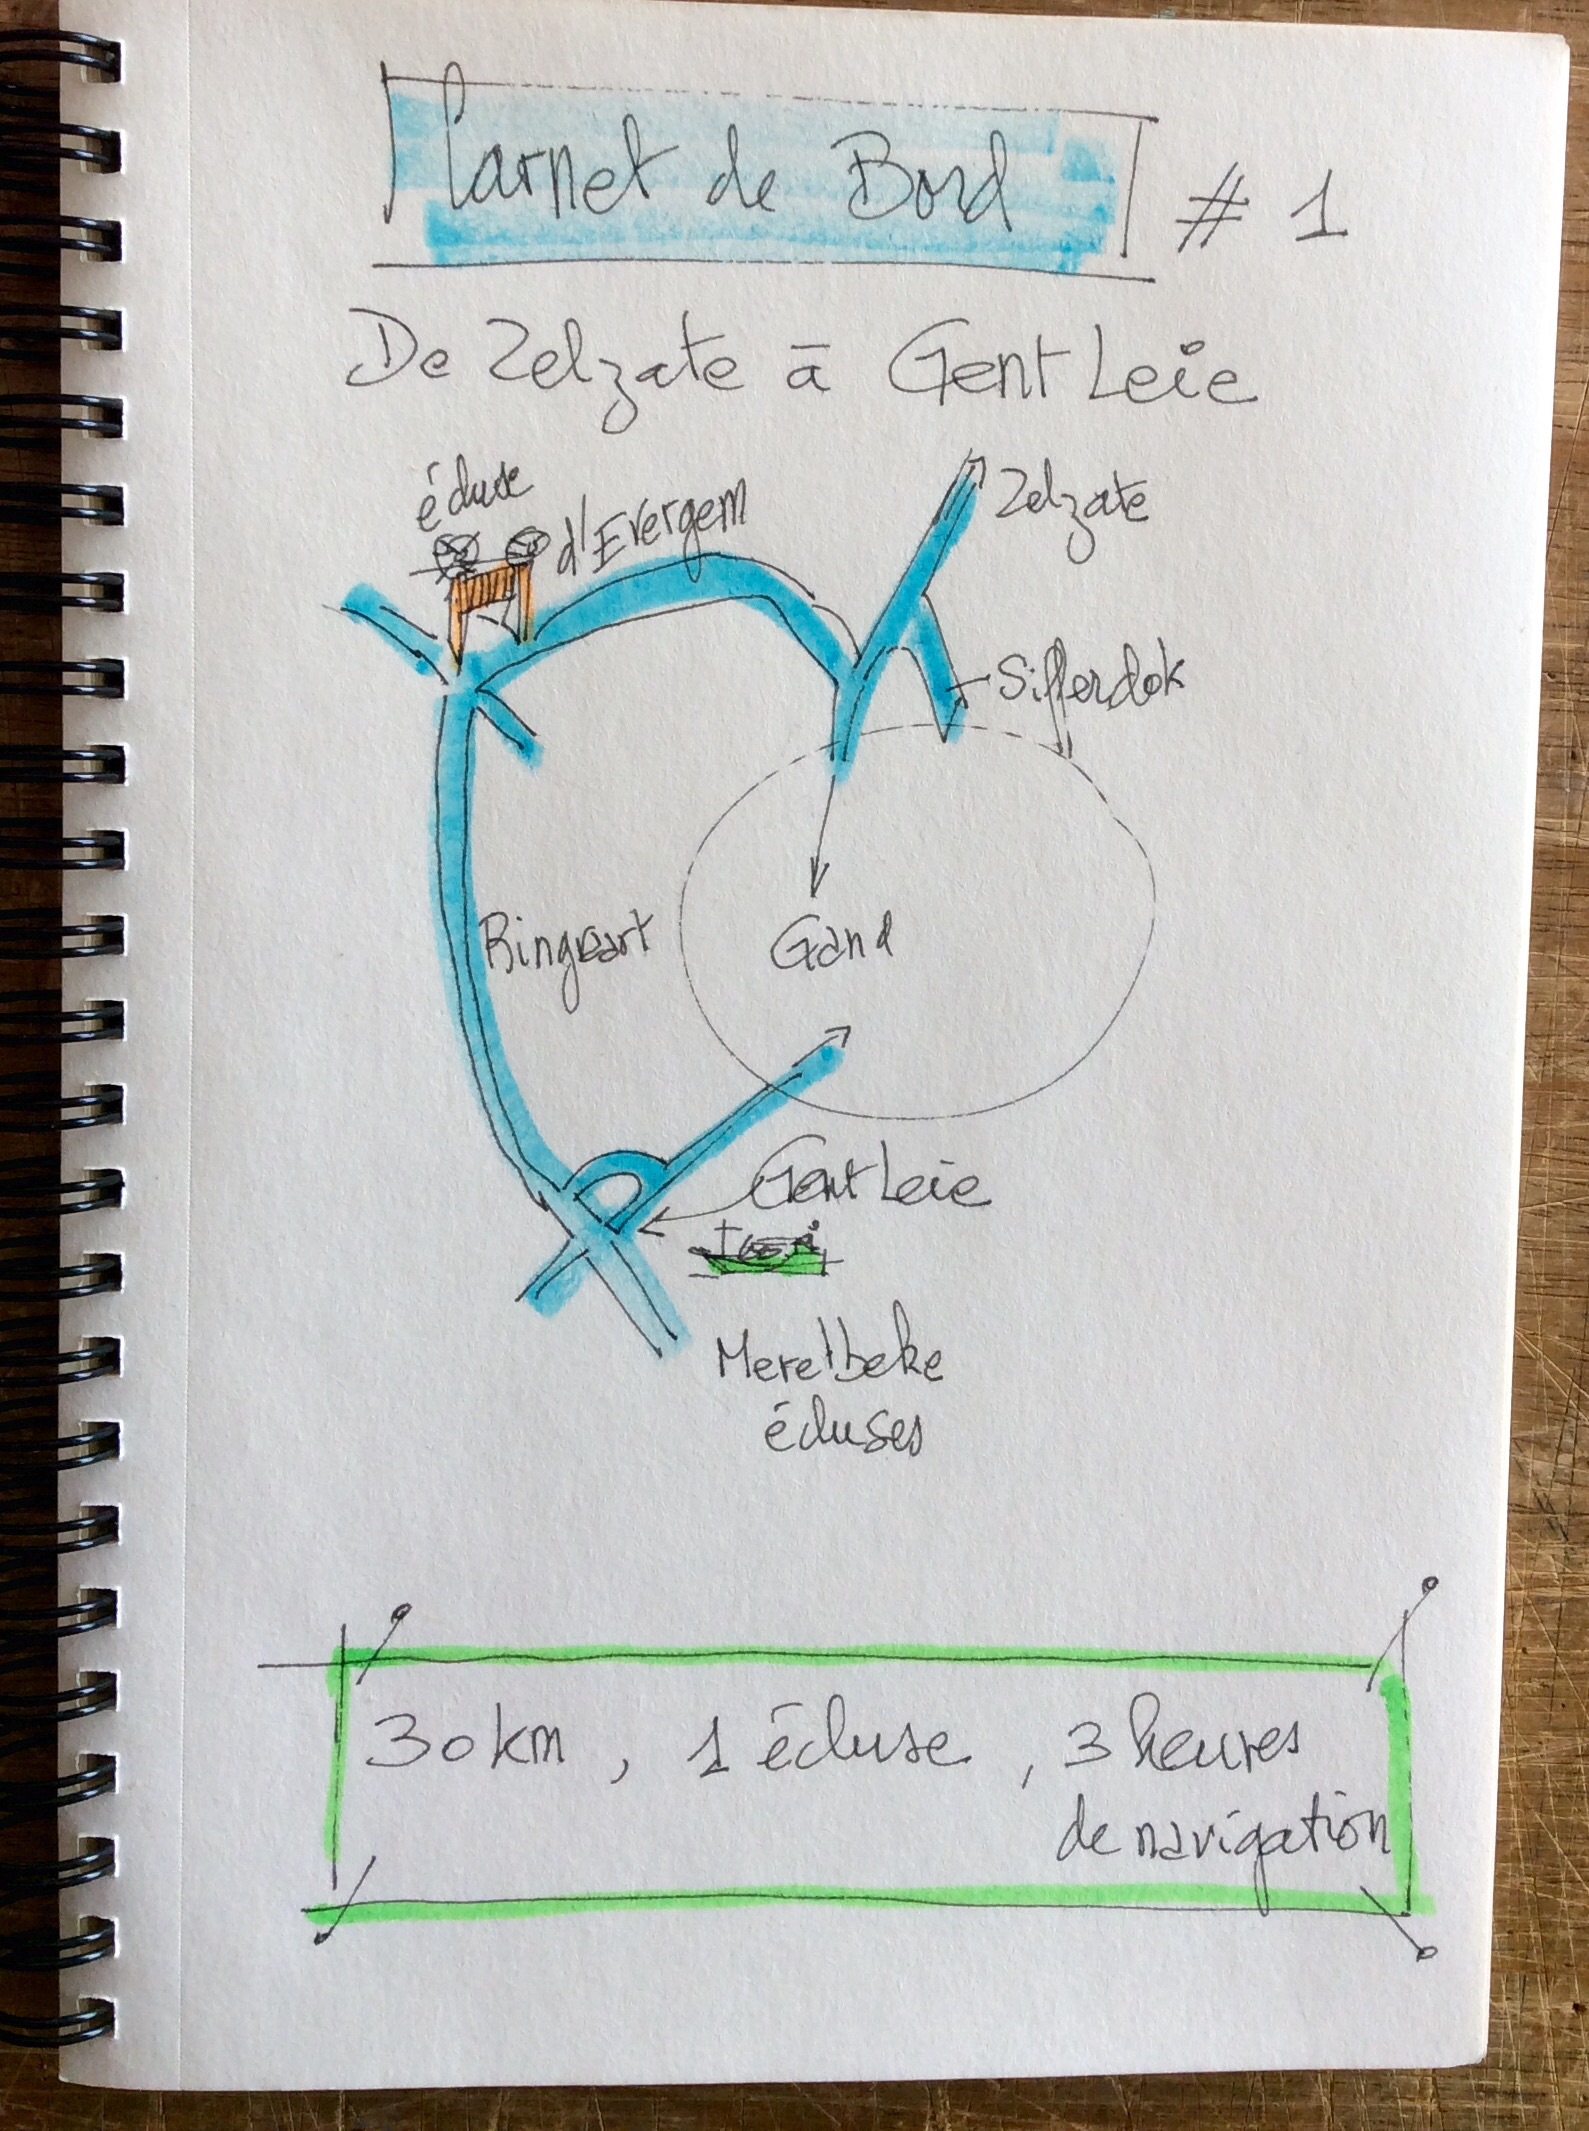 Carnet de Bord # 1
De Zelzate à Gent Leie
écluse
d'Evergem
Zelzate
Sifferdok
Ringvaart
Gand
Gent Leie
Merelbeke
écluses
30 km , 1 écluse , 3 heures
de navigation